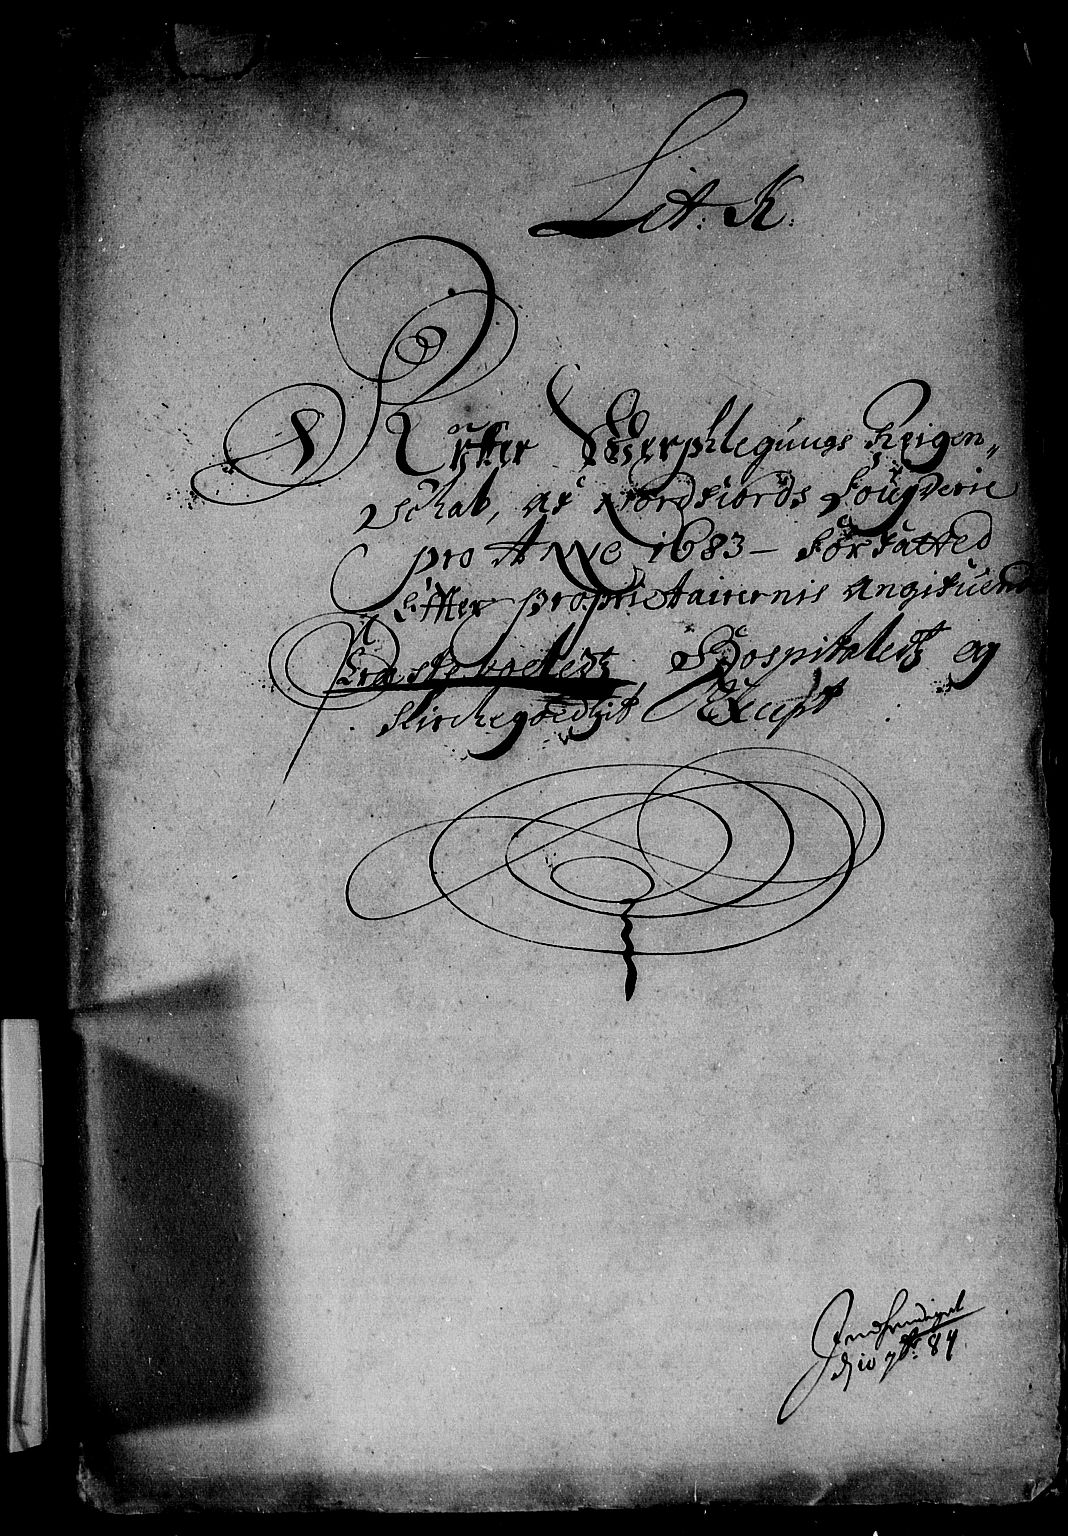 Lit. K.
Rÿtter Werpflegungs Reigen-
schab, af Nordfiords Fougderie
pro Anno 1683 – forfatted
Effter proprietairernis angifuende
Hospitaletz og
Kirchegoedzit Except
d 10 7br: 84